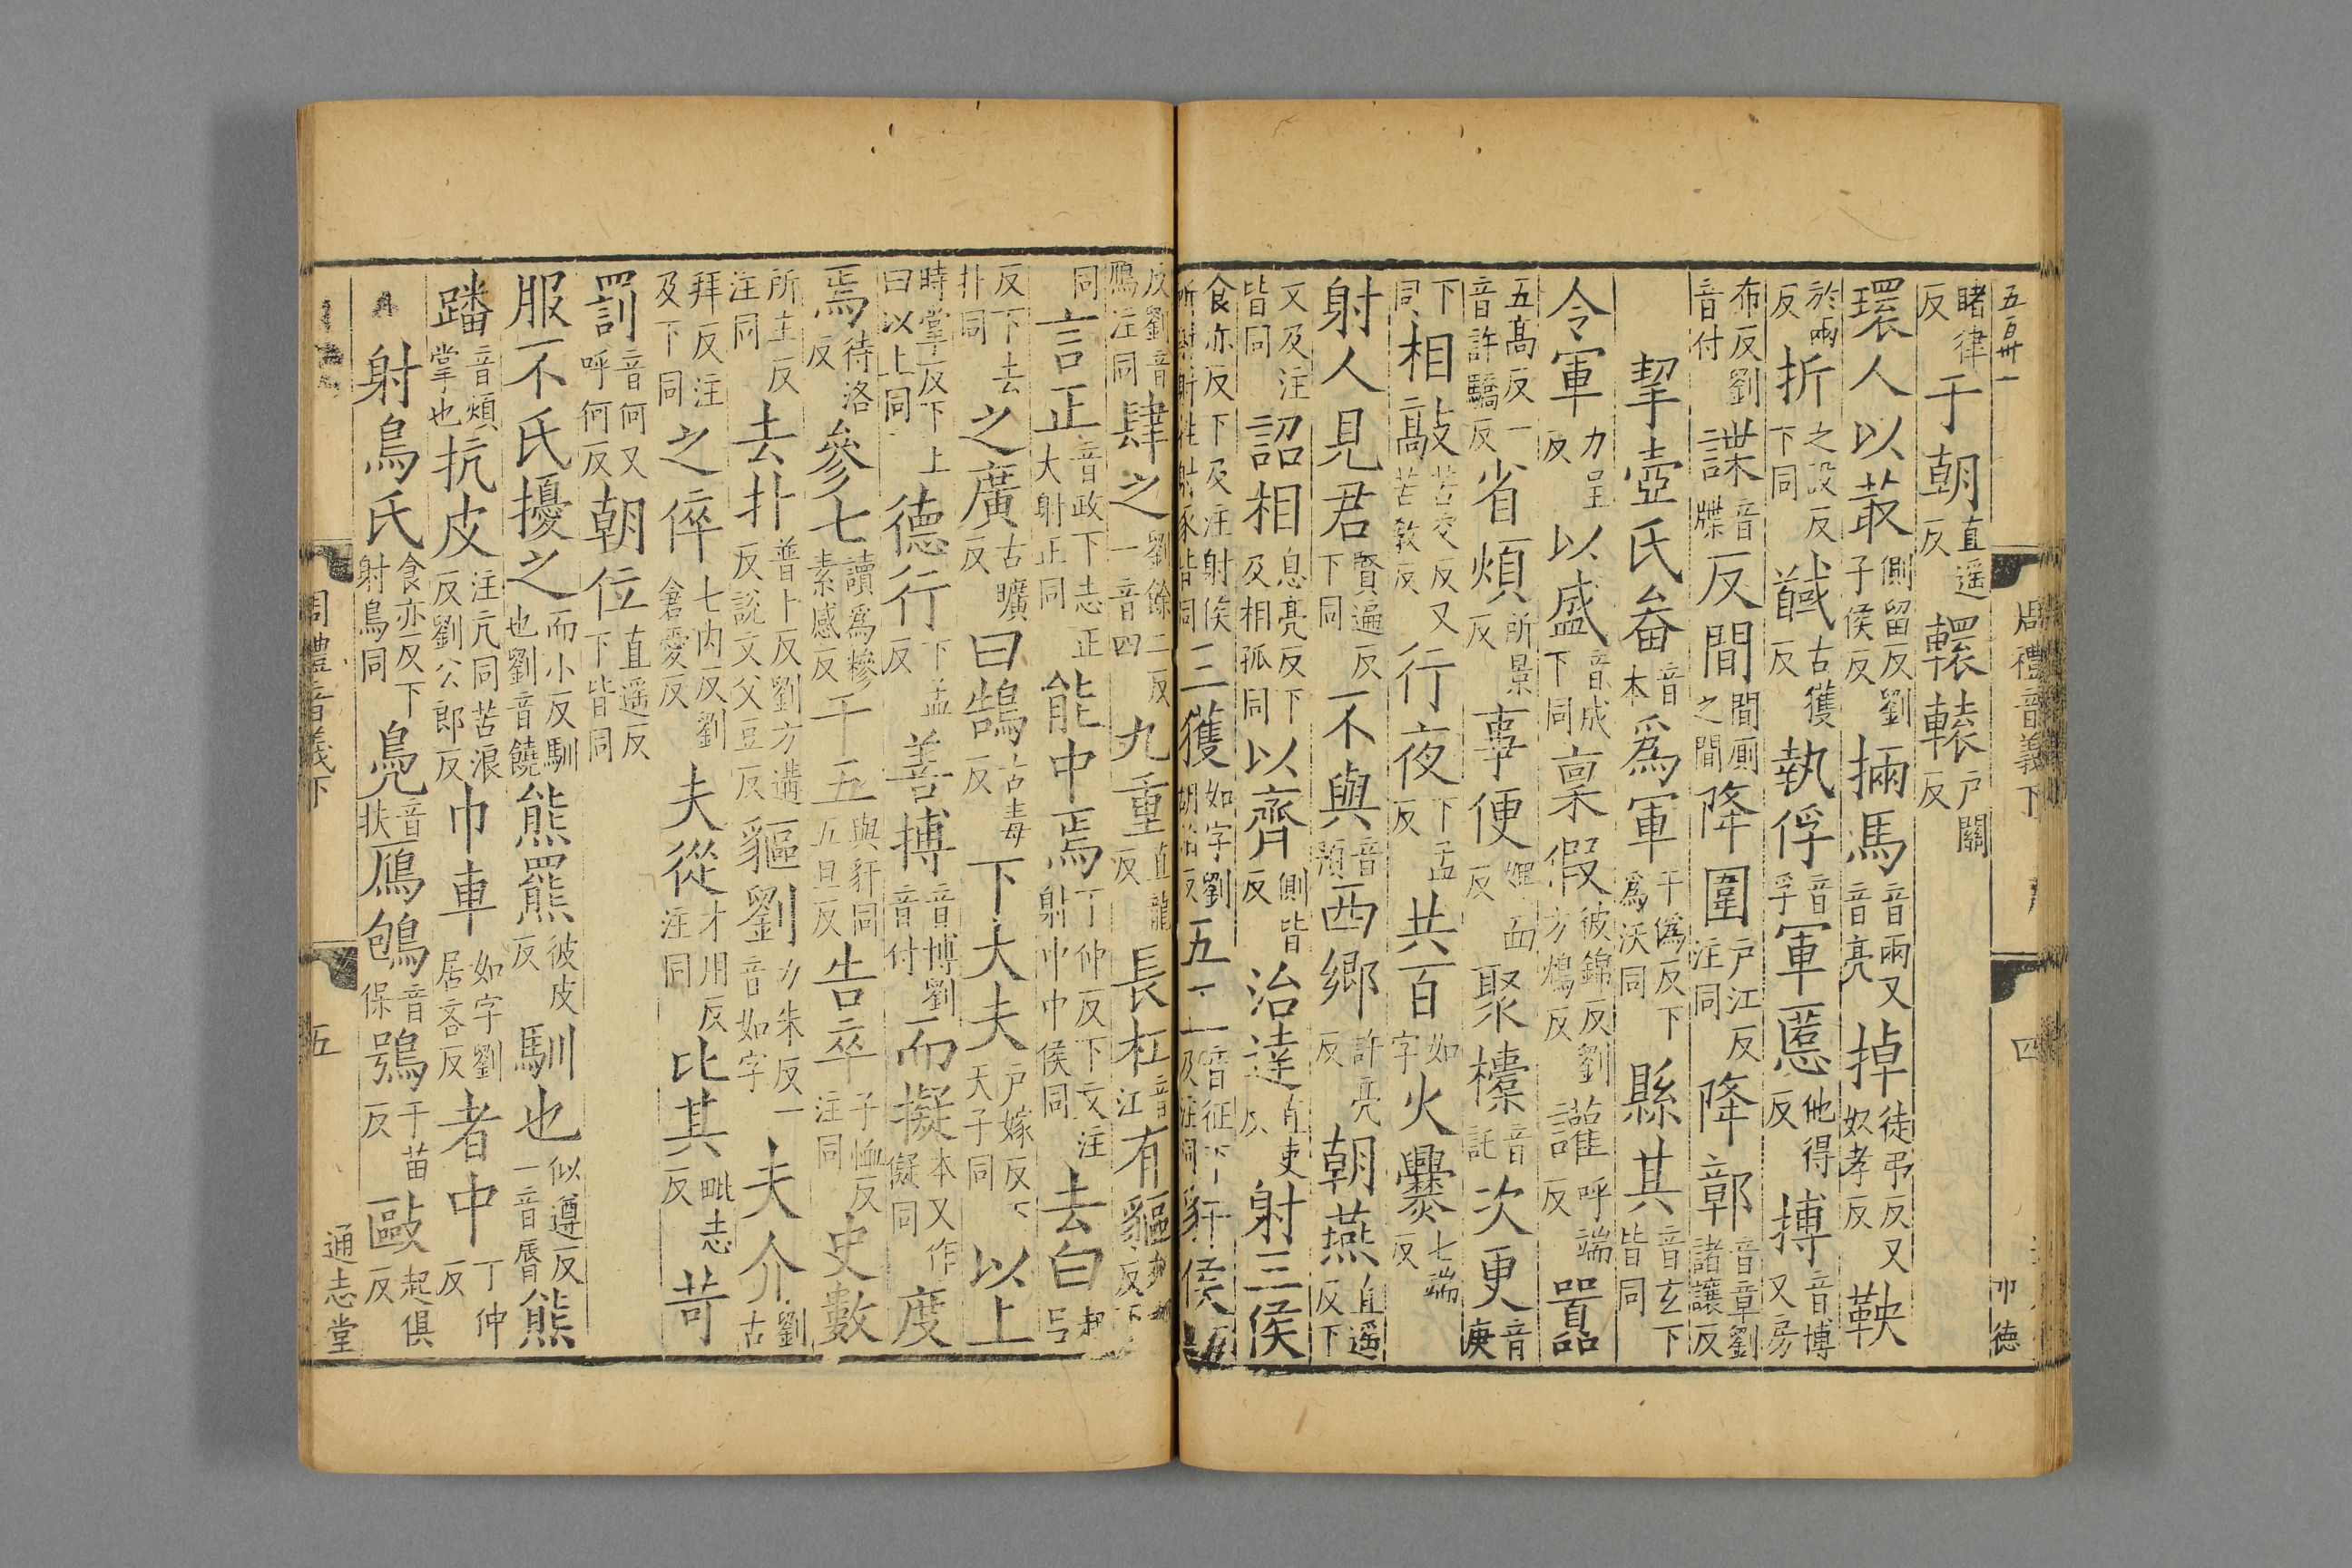 五百卌一
周禮音義下
四
卭德
睹律反于朝直遥反轘轅户關反
環人以菆側留反劉子侯反掚馬音兩又音亮掉徒弔反又奴孝反鞅
於兩反折之設反下同馘古獲反執俘音孚軍慝他得反搏音博又房
布反劉音付諜音牒反間間厠之間降圍户江反注同降鄣音章劉諸讓反
挈壺氏畚音本爲軍于僞反下爲沃同縣其音玄下皆同
令軍力呈反以盛音成下同稟假彼錦反劉方鴆反讙呼端反嚻
五髙反一音許驕反省煩所景反事便婢面反聚㯱音託次更音庚
下同相敲苦交反又苦敎反行夜下孟反共百如字火爨七端反
射人見君賢遍反下同不與音預西郷許亮反朝燕直遥反下
又及注皆同詔相息亮反下及相孤同以齊側皆反治達直吏反射三侯
食亦反下及注射侯三獲如字劉五正音征下豻侯
反劉音鴈注同肆之劉餘二反一音四九重直龍反長杠音江有貙
同言正音政下志正大射正同能中焉丁仲反下文注射中中侯同去白
反下去扑同之廣古曠反曰鵠古毒反下大夫户嫁反下天子同以上
時掌反下上曰以上同德行下孟反善搏音博劉音付而擬本又作儗同度
焉待洛反參七讀爲糝素感反干五與豻同五旦反告卒子恤反注同史數
所主反注同去扑普卜反劉方遘反說文父豆反貙劉力朱反一音如字夫介劉古
拜反注及下同之倅七内反劉倉愛反夫從才用反注同比其毗志反苛
罰音何又呼何反朝位直遥反下皆同
服不氏擾之而小反馴也劉音饒熊羆彼皮反馴也似遵反一音脣熊
蹯音煩掌也抗皮注亢同苦浪反劉公郎反巾車如字劉居吝反者中丁仲反
射鳥氏食亦反下射鳥同鳧音扶鴈鴇音保鴞于苗反敺起俱反
周禮音義下
五
通志堂